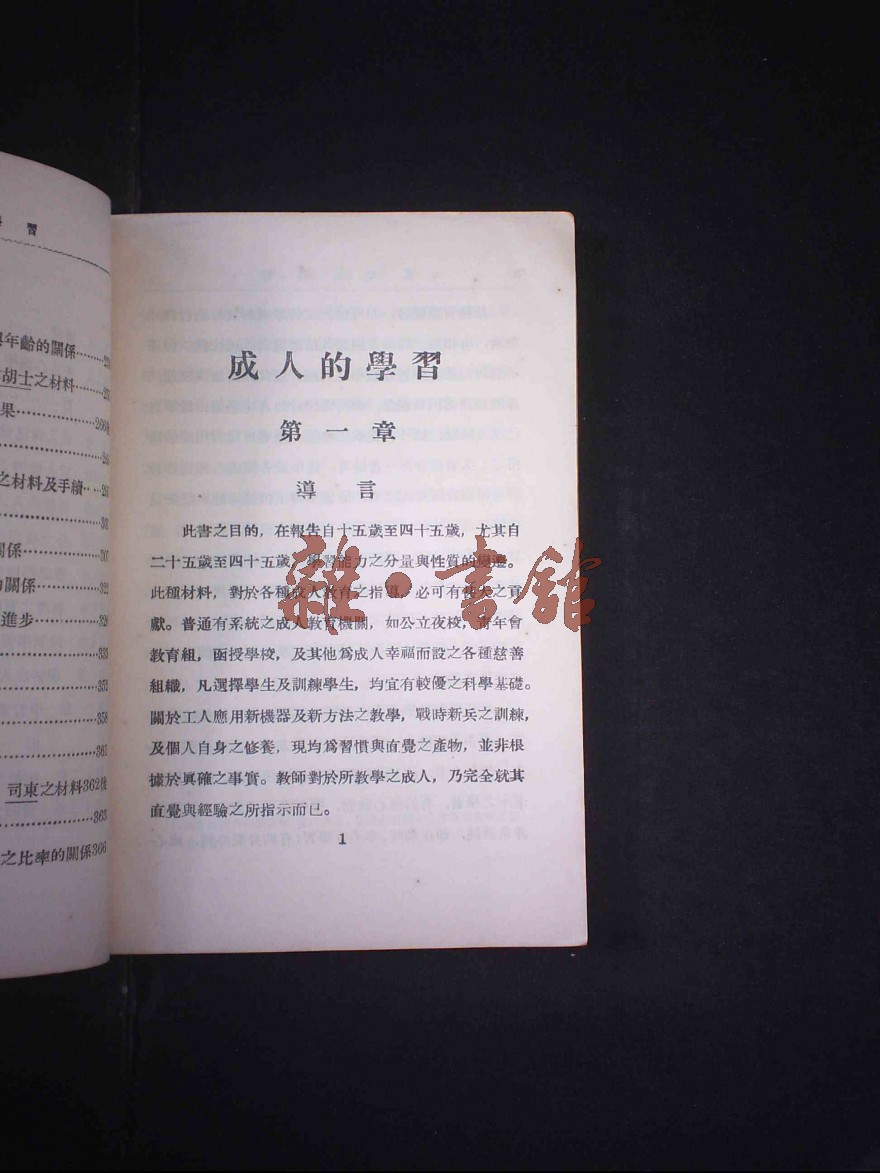 習
年齡的關係……
胡士之材料……
果……266
之材料及手續
關係……307
關係……322
進步……326
……333
……352
……358
……361
司東之材料362後
……363
之比率的關係366
成人的學習
第一章
導言
此書之目的，在報告自十五歲至四十五歲，尤其自
二十五歲至四十五歲，學習能力之分量與性質的變遷。
此種材料，對於各種成人教育之指導，必可有偉大之貢
獻。普通有系統之成人教育機關，如公立夜校，青年會
教育組，函授學校，及其他為成人幸福而設之各種慈善
組織，凡選擇學生及訓練學生，均宜有較優之科學基礎。
關於工人應用新機器及新方法之教學，戰時新兵之訓練，
及個人自身之修養，現均為習慣與直覺之產物，並非根
據於眞確之事實。教師對於所教學之成人，乃完全就其
直覺與經驗之所指示而已。
1
雜·書館